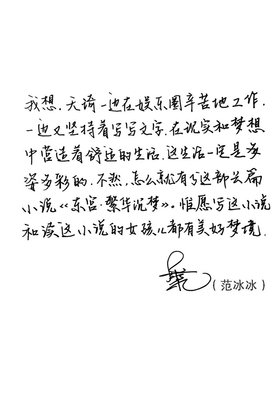 我想，天琦一边在娱乐圈辛苦地工作，
一边又坚持着写写文字，在现实和梦想
中营造着舒适的生活，这生活一定是多
姿多彩的，不然，怎么就有了这部长篇
小说《东宫·繁华沉梦》。惟愿写这小说
和读这小说的女孩儿都有美好梦境。
（范冰冰）